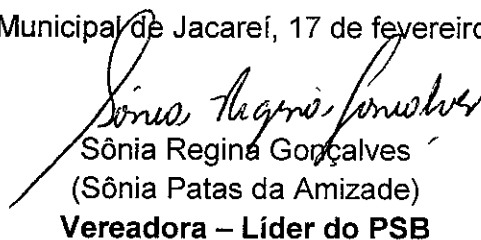 Municipal de Jacareí, 17 de fevereiro
Sônia Regina Gonçalves
Sônia Regina Gonçalves
(Sônia Patas da Amizade)
Vereadora – Líder do PSB